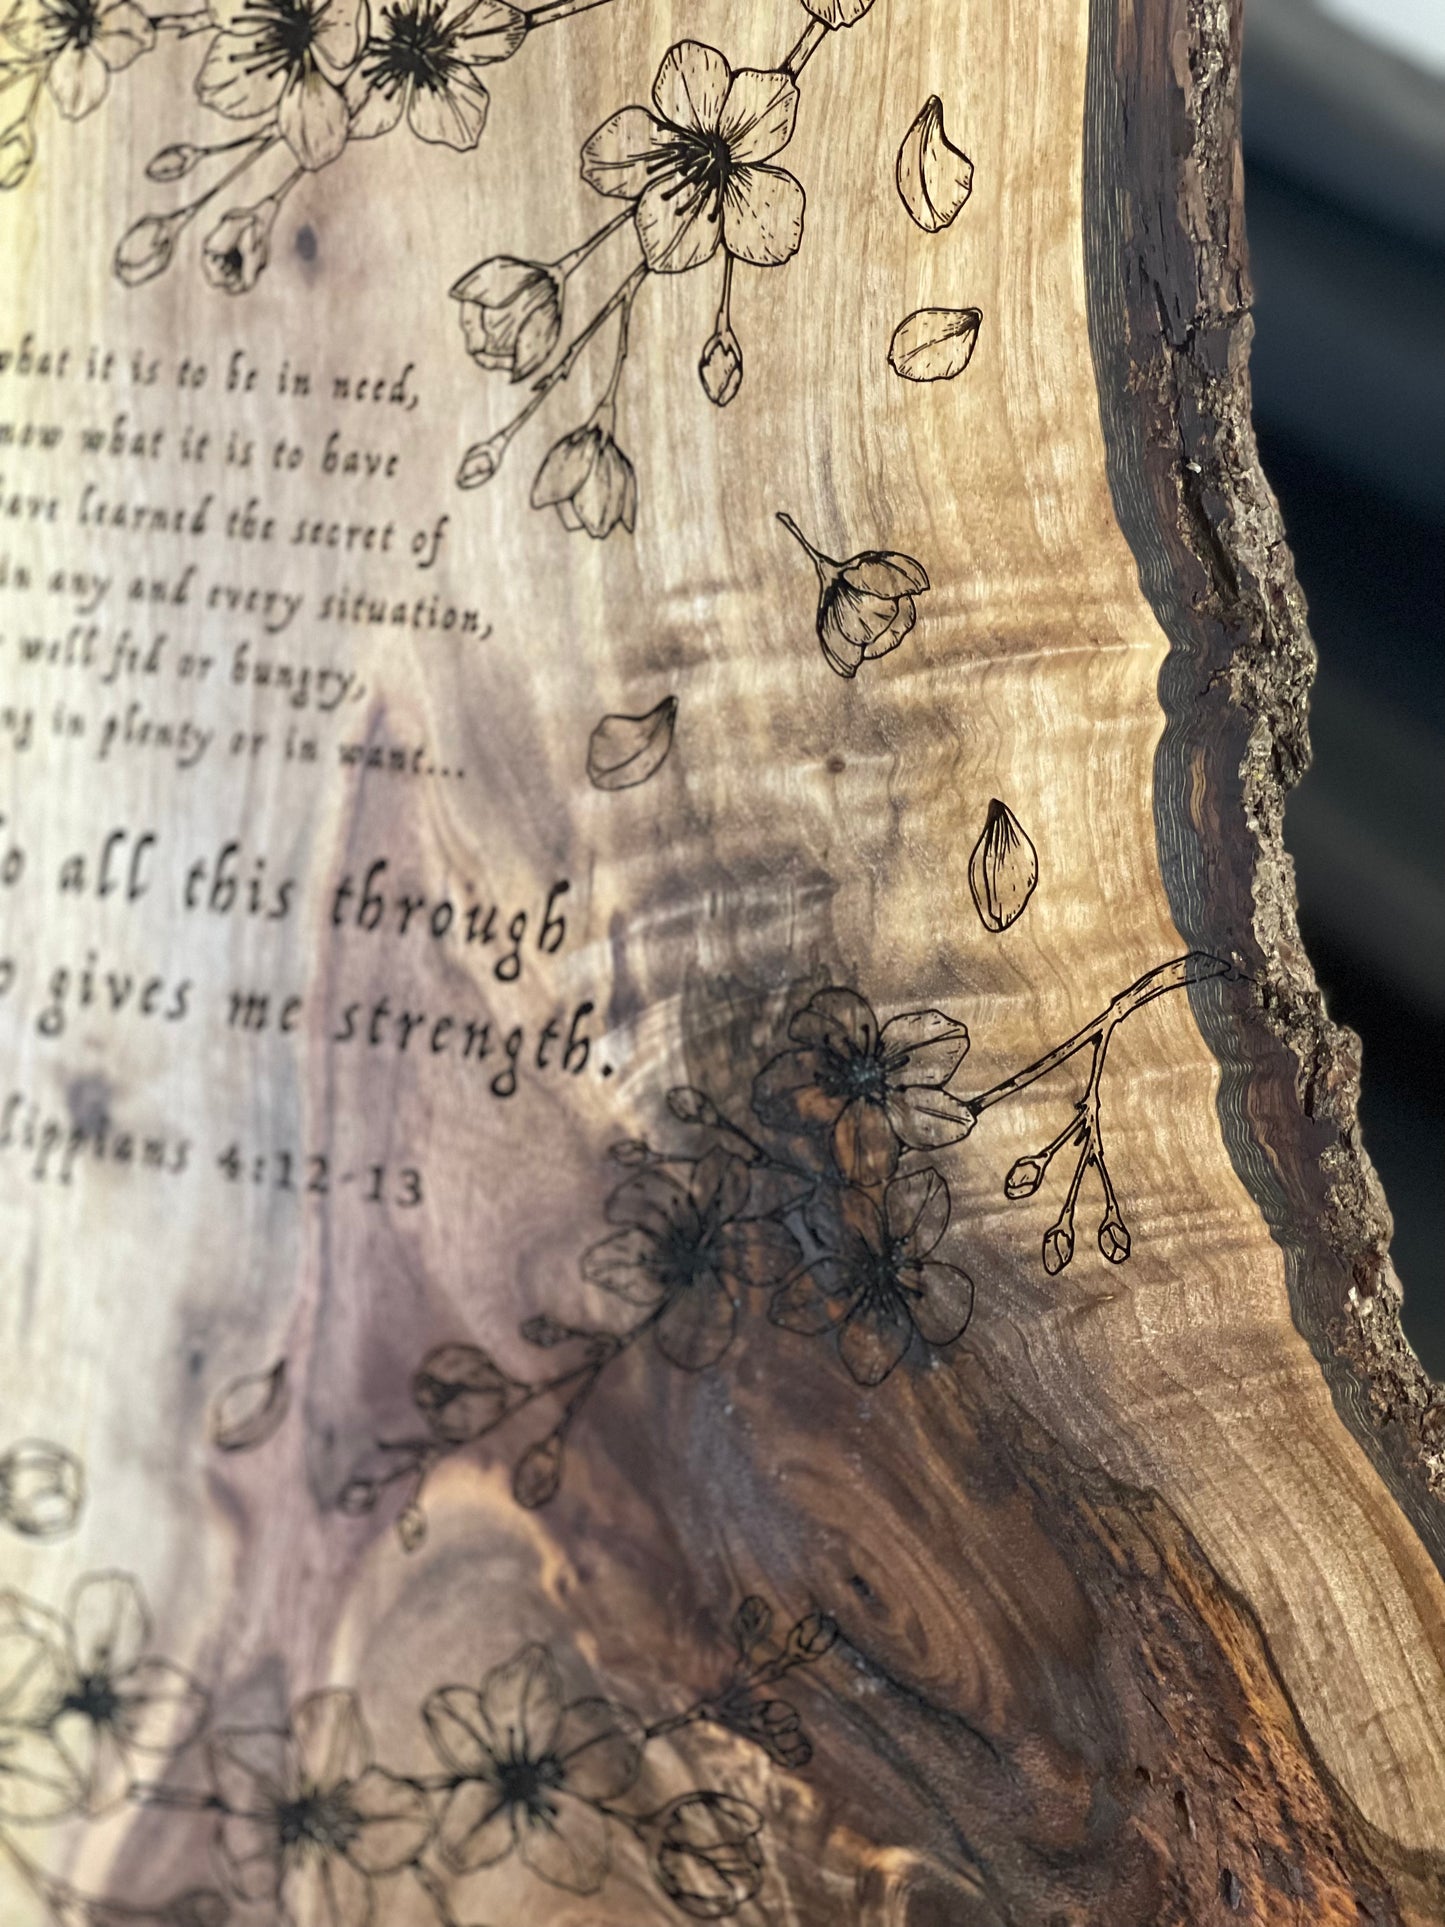 what it is to be in need,
now what it is to have
have learned the secret of
in any and every situation,
well fed or hungry,
ng in plenty or in want...
o all this through
o gives me strength.
lippians 4:12-13